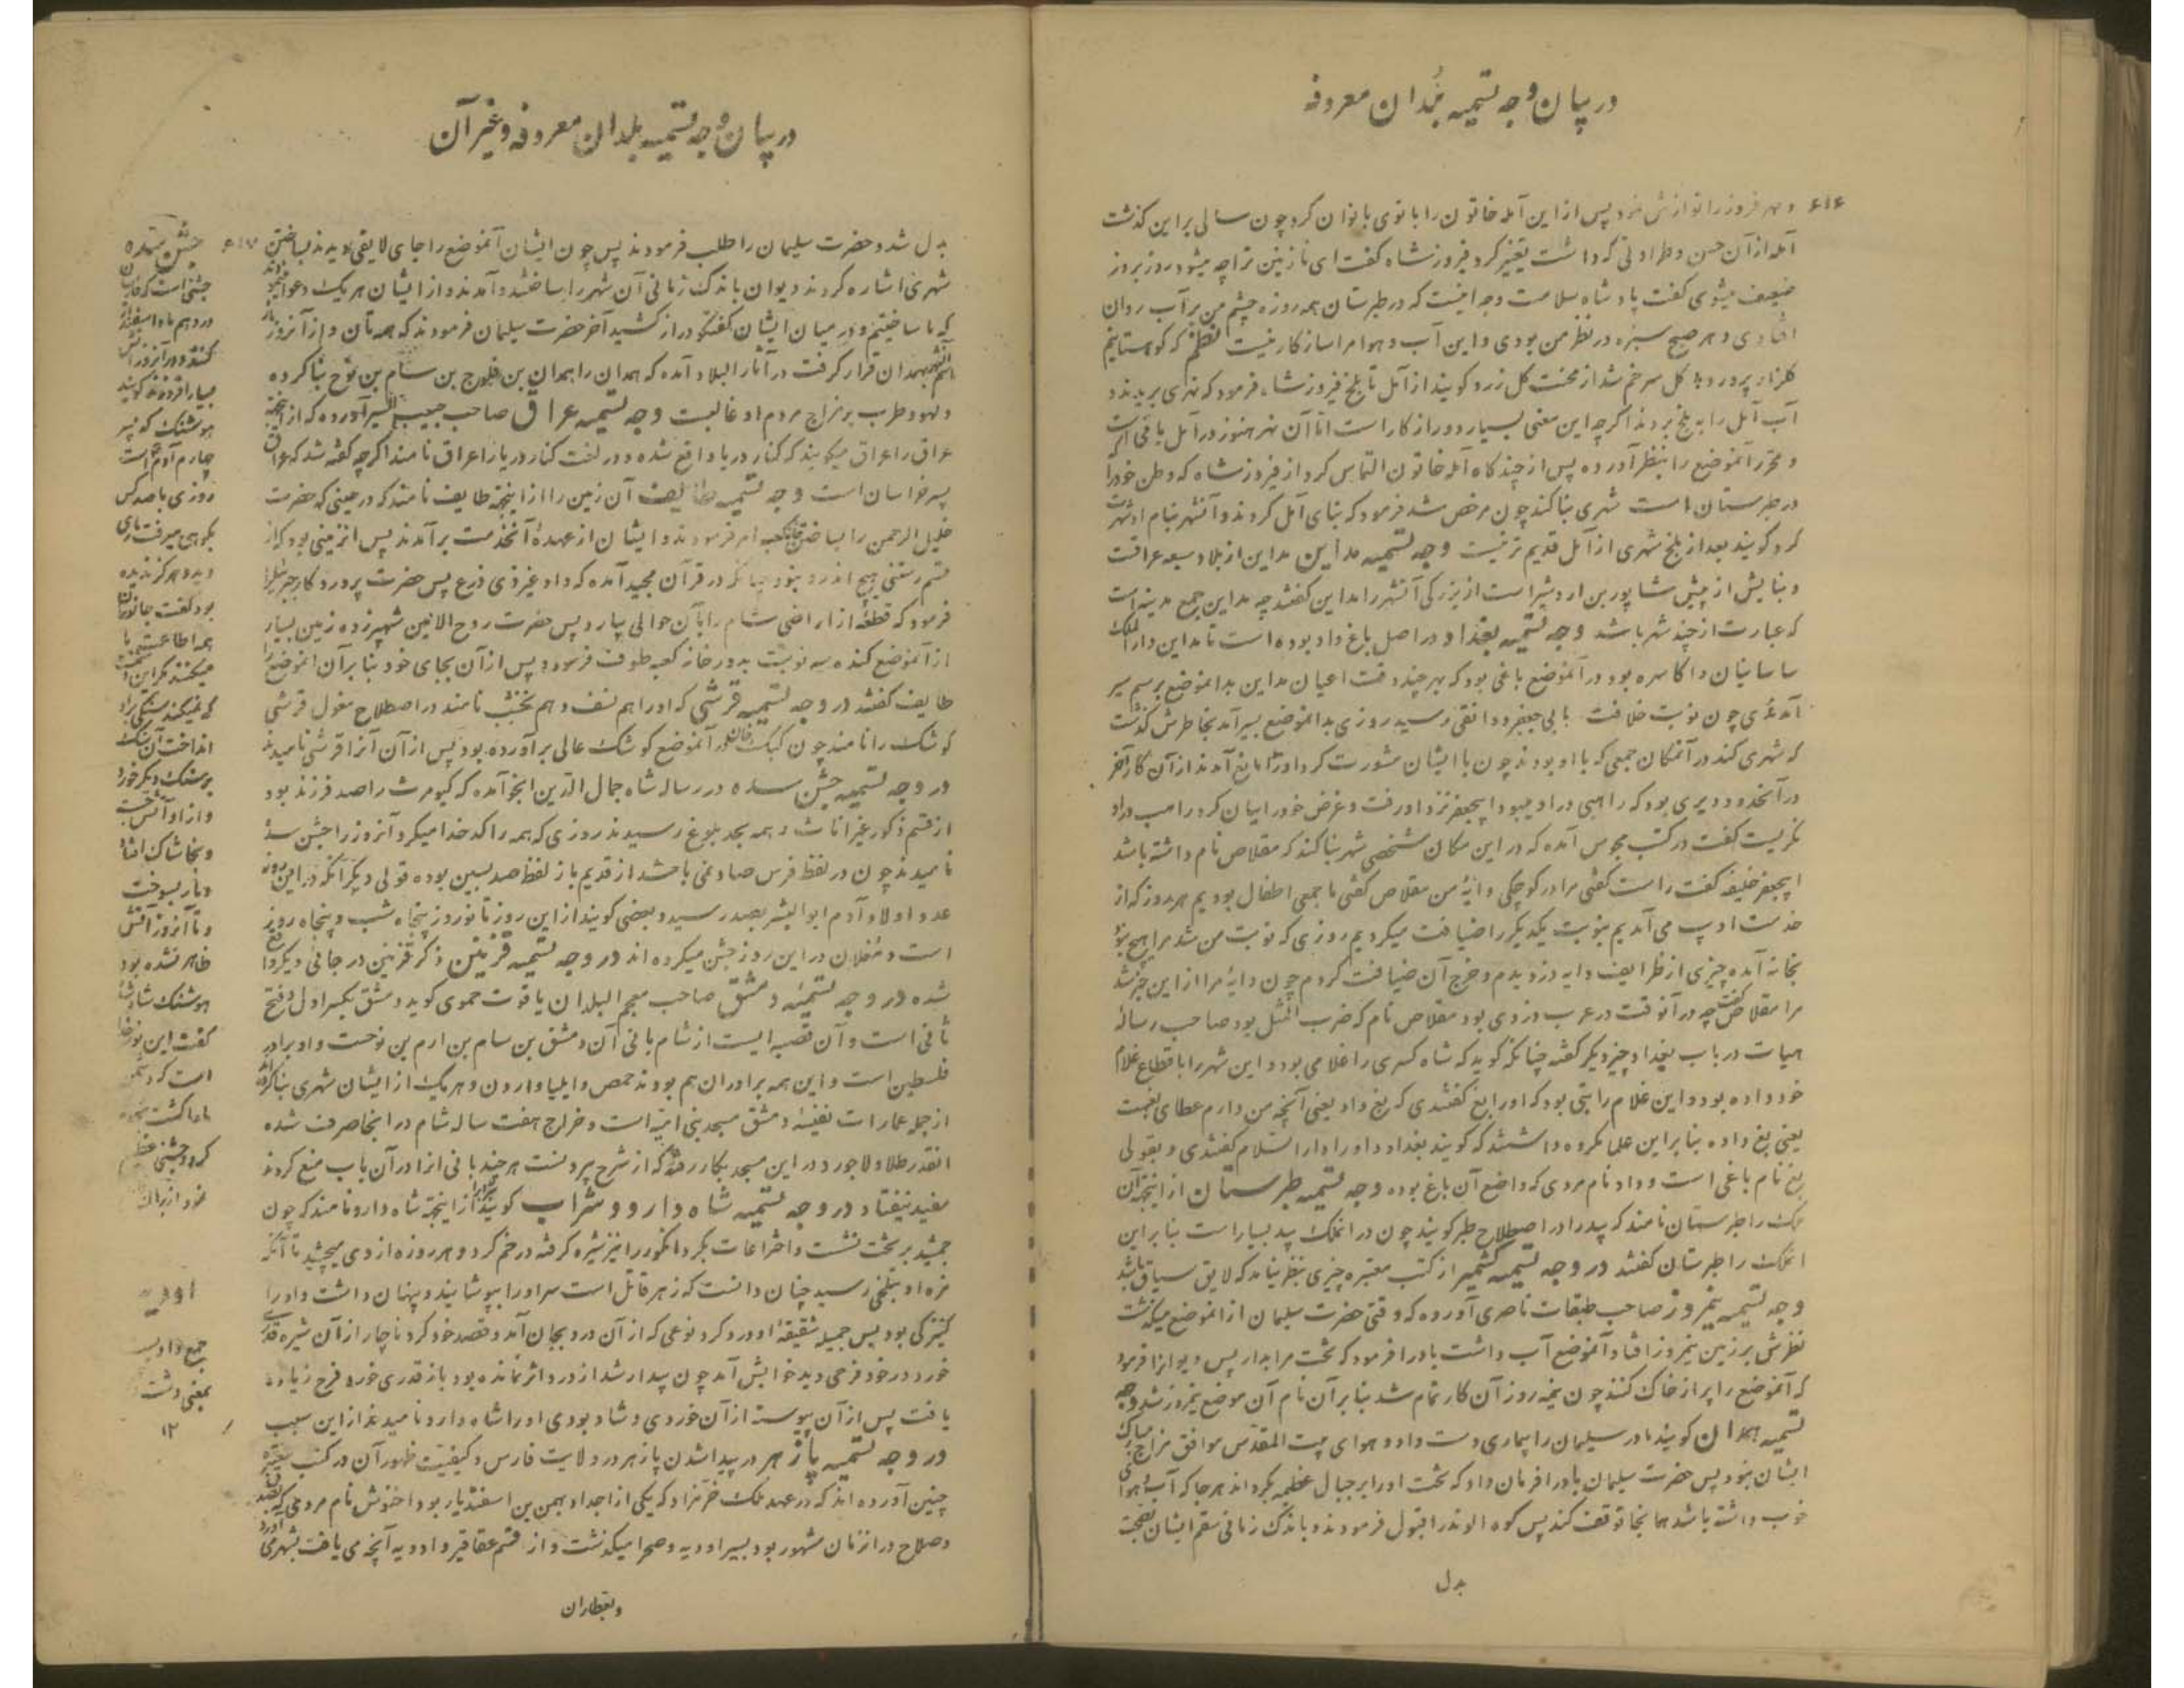 در بیان وجه تسمیه بلدان معروفه
۶۱۶
و مهر فروز را نوازش نمود پس از این آمله خاتون را بانوی بانوان کرد چون سالی بر این گذشت
آمله از آن حسن و طراوتی که داشت تغییر کرد فیروز شاه گفت ای نازنین ترا چه میشود روز بروز
ضعیف میشوی گفت پادشاه سلامت وجه اینست که در طبرستان همه روزه چشم من بر آب روان
افتادی و هر صبح سبزه در نظر من بودی و این آب و هوا مرا سازگار نیست نظم که کوهستانیم
گلزار پرورد گل سرخم شد از محنت گل زرد گویند از آمل تا بلخ فیروز شاه فرمود که نهری بریدند و
آب آمل را به بلخ بردند اگرچه این معنی بسیار دور از کار است اما آن نهر هنوز در آمل باقی است
و محرر آنموضع را بنظر آورده پس از چندگاه آمله خاتون التماس کرد از فیروز شاه که وطن خود را
در طبرستان است شهری بنا کند چون مرخص شد فرمود که بنای آمل کردند و آنشهر بنام او شهرت
کرد گویند بعد از بلخ شهری از آمل قدیم تر نیست وجه تسمیه مداین مداین از بلاد سبعه عراقست
و بنایش از پیش شاپور بن اردشیر است از بزرگی آنشهر را مداین گفتند چه مداین جمع مدینه است
که عبارت از چند شهر باشد وجه تسمیه بغداد در اصل باغ داد بوده است تا مداین دار الملک
ساسانیان و اکاسره بود در آنموضع باغی بود که بهر چند وقت اعیان مداین بدانموضع برسم سیر
آمدندی چون نوبت خلافت بابی جعفر دوانقی رسید روزی بدانموضع بسیر آمد بخاطرش گذشت
که شهری کند در آنمکان جمعی که با او بودند چون با ایشان مشورت کرد او را مانع آمدند از آن کار آخر
در آنحدود دیری بود که راهبی در او میبود ابیجعفر نزد او رفت و غرض خود را بیان کرد راهب در او
نگریست گفت در کتب مجوس آمده که در این مکان شخصی شهر بنا کند که مقلاص نام داشته باشد
ابیجعفر خلیفه گفت راست گفتی مرا در کوچکی دایهٔ من مقلاص گفتی با جمعی اطفال بودیم هر روز که از
خدمت ادیب می آمدیم بنوبت یکدیگر را ضیافت میکردیم روزی که نوبت من شد مرا هیچ نبود
بخانه آمده چیزی از ظرایف دایه دزدیدم و خرج آن ضیافت کردم چون دایه مرا از این خبر شد
مرا مقلاص گفت چه در آنوقت در عرب دزدی بود مقلاص نام که ضرب المثل بود صاحب رساله
هیات در باب بغداد چیز دیگر گفته چنانکه گوید که شاه کسری را غلامی بود و این شهر را باقطاع غلام
خود داده بود و این غلام را بتی بود که او را بغ گفتندی که بغ داد یعنی آنچه من دارم عطای بغست
یعنی بغ داده بنا براین علما مکروه داشتند که گویند بغداد و او را دار السلام گفتندی و بقولی
بغ نام باغی است و داد نام مردی که واضع آن باغ بوده وجه تسمیه طبرستان از اینجهة آن
ملک را طبرستان نامند که بید را در اصطلاح طبر گویند چون در انملک بید بسیار است بنا براین
انملک را طبرستان گفتند در وجه تسمیه کشمیر از کتب معتبره چیزی بنظر نیامد که لایق سیاق باشد
وجه تسمیه نیمروز صاحب طبقات ناصری آورده که وقتی حضرت سلیمان از انموضع میگذشت
نظرش بر زمین نیمروز افتاد آنموضع آب داشت باد را فرمود که تخت مرا بدار پس دیوانرا فرمود
که آنموضع را پر از خاک کنند چون نیمه روز آن کار تمام شد بنا بر آن نام آن موضع نیمروز شد وجه
تسمیه همدان گویند مادر سلیمان را بیماری دست داد و هوای بیت المقدس موافق مزاج مبارک
ایشان نبود پس حضرت سلیمان باد را فرمان داد که تخت او را بر جبال عظیمه بگرداند هر جا که آب و هوای
خوب داشته باشد همانجا توقف کند پس کوه الوند را قبول فرمودند و باندک زمانی سقم ایشان بصحت
بدل
در بیان وجه تسمیه بلدان معروفه و غیر آن
۶۱۷
بدل شد و حضرت سلیمان را طلب فرمودند پس چون ایشان آنموضع را جای لایقی دیدند بساختن
شهری اشاره کردند دیوان باندک زمانی آن شهر را ساختند و آمدند و از ایشان هر یک دعوا
که ما ساختیم و در میان ایشان گفتگو دراز کشید آخر حضرت سلیمان فرمودند که همدان و از آنروز باز
اسم آنشهر بهمدان قرار گرفت در آثار البلاد آمده که همدان را همدان بن فلوج بن سام بن نوح بنا کرده
و لهو و طرب بر مزاج مردم او غالبست وجه تسمیه عراق صاحب حبیب السیر آورده که از اینجهة
عراق را عراق میگویند که کنار دریا واقع شده و در لغت کنار دریا را عراق نامند اگرچه گفته شد که عراق
پسر خراسان است وجه تسمیه طایف آن زمین را از اینجهة طایف نامند که در حینی که حضرت
خلیل الرحمن را بساختن خانه کعبه امر فرمودند و ایشان از عهدهٔ آنخدمت برآمدند پس انزمینی بود که از
قسم رستنی هیچ اندر نبود چنانکه در قرآن مجید آمده که واد غیر ذی زرع پس حضرت پروردگار جبرئیل را
فرمود که قطعهٔ از اراضی شام را بآن حوالی بیارد پس حضرت روح الامین شهپر زده زمین بسیار
از آنموضع کنده سه نوبت بدور خانه کعبه طوف فرمود و پس از آن بجای خود بنا بر آن انموضع را
طایف گفتند در وجه تسمیه قرشی که او را هم نسف و هم نخشب نامند در اصطلاح مغول قرشی
کوشک را نامند چون کبک خان در آنموضع کوشک عالی برآورده بود پس از آن آنرا قرشی نامیدند
در وجه تسمیه جشن سده در رساله شاه جمال الدین انجو آمده که کیومرث را صد فرزند بود
از قسم ذکور غیر اناث و همه بحد بلوغ رسیدند روزی که همه را کدخدا میکرد آنروز را جشن سده
نامیدند چون در لفظ فرس صاد نمی باشد از قدیم باز لفظ صد بسین بوده قولی دیگر آنکه در این روز
عدد اولاد آدم ابو البشر بصد رسید و بعضی گویند از این روز تا نوروز پنجاه شب و پنجاه روز
است و مغلان در این روز جشن میکرده اند در وجه تسمیه قزوین ذکر قزوین در جائی دیگر واقع
شده در وجه تسمیه دمشق صاحب معجم البلدان یاقوت حموی گوید دمشق بکسر اول و فتح
ثانی است و آن قصبه ایست از شام بانی آن دمشق بن سام بن ارم بن نوحست و او برادر
فلسطین است و این همه برادران هم بودند حمص و ایلیا و اردن و هر یک از ایشان شهری بنا کرده اند
از جمله عمارات نفیسه دمشق مسجد بنی امیه است و خراج هفت ساله شام در آنجا صرف شده
انقدر طلا و لاجورد در این مسجد بکار رفته که از شرح بیرونست هر چند بانی انرا در آن باب منع کردند
مفید نیفتاد در وجه تسمیه شاه دارو و شراب گویند شراب را از اینجهة شاه دارو نامند که چون
جمشید بر تخت نشست و اختراعات بکرد انگور را نیز شیره گرفته در خم کرد و هر روزه از وی میچشید تا آنکه
مزه او بتلخی رسید چنان دانست که زهر قاتل است سر او را بپوشانید و پنهان داشت و او را
کنیزکی بود بس جمیله شقیقهٔ او درد کرد نوعی که از آن درد بجان آمد و قصد خود کرد ناچار از آن شیره قدری
خورد در خود فرحی دید خوابش آمد چون بیدار شد از درد اثر نمانده بود باز قدری خورد فرح زیاده
یافت پس از آن پیوسته از آن خوردی و شاد بودی او را شاه دارو نامیدند از این سبب
در وجه تسمیه پازهر در پیدا شدن پازهر در ولایت فارس و کیفیت ظهور آن در کتب معتبره
چنین آورده اند که در عهد ملک خرمزاد که یکی از اجداد بهمن بن اسفندیار بود اخنوش نام مردمی که بفضل
و صلاح در انزمان مشهور بود بسیر اودیه و صحرا میگذشت و از قسم عقاقیر و ادویه آنچه می یافت بشهر می آورد
و بعطاران
جشن سده
جشنی است که فارسیان
در دهم ماه اسفندار
کنند و در آنروز آتش
بسیار افروزند گویند
هوشنگ که پسر
چهارم آدم است
روزی با صد کس
بکوهی میرفت ماری
دید و هرگز ندیده
بود گفت جانوران
همه اطاعت ما
میکنند مگر این دشمنست
که نمیکند سنگی برو
انداخت آن سنگ
بر سنگ دیگر خورد
و از او آتش جست
و بخاشاک افتاد
و مار بسوخت
و تا آنروز آتش
ظاهر نشده بود
هوشنگ شاد شد
گفت این نور خدا
است که دشمن
ما را کشت سجده
کرد و جشنی عظیم
نمود از برای
اودیه
جمع وادیست
بمعنی دشت
۱۲